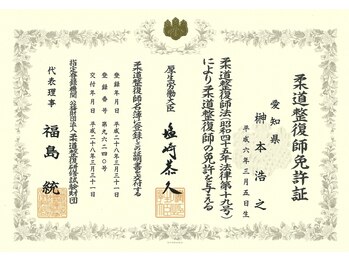 柔道整復師免許証
愛知県
榊本浩之
平成六年三月五日生
柔道整復師法(昭和四十五年法律第十九号)
により柔道整復師の免許を与える
厚生労働大臣 塩崎恭久
柔道整復師名簿に登録しこの証明書を交付する
登録年月日 平成二十八年三月三十一日
登録番号 第九六二四〇号
交付年月日 平成二十八年三月三十一日
指定登録機関 公益財団法人柔道整復研修試験財団
代表理事 福島統